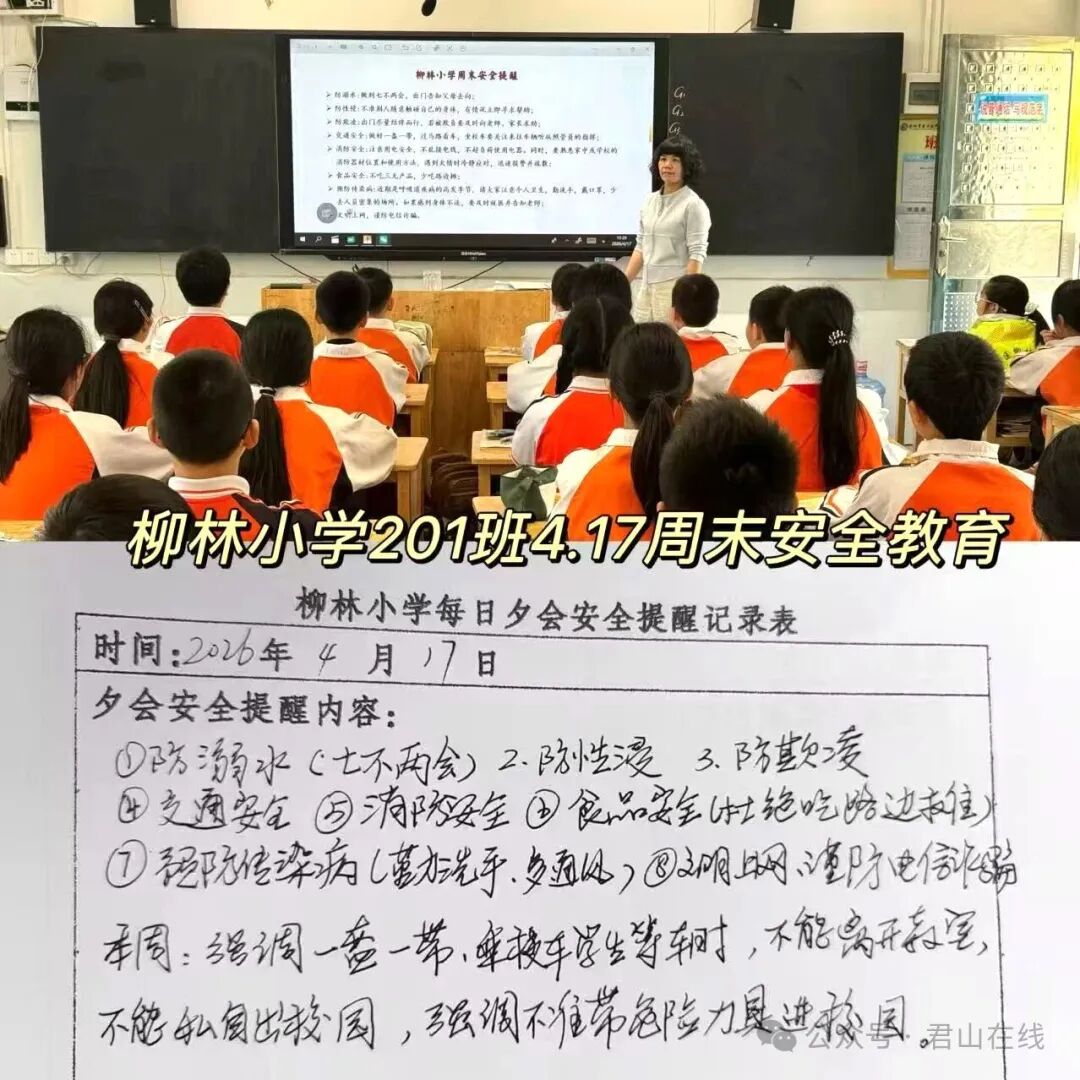 柳林小学周末安全提醒
防溺水:做到七不两会,出门告知父母去向;
防性侵:不准别人随意触碰自己的身体,有情况立即寻求帮助;
防欺凌:出门尽量结伴而行,若被欺负要及时向老师、家长求助;
交通安全:做好一盔一带,过马路看车,坐校车要关注来往车辆听从照管员的指挥;
消防安全:注意用电安全,不乱接电线,不超负荷使用电器。同时,要熟悉家中或学校的
消防器材位置和使用方法,遇到火情时冷静应对,迅速报警并疏散;
食品安全:不吃三无产品,少吃路边摊;
预防传染病:近期是呼吸道疾病的高发季节,请大家注意个人卫生,勤洗手,戴口罩,少
去人员密集的场所,如果感到身体不适,要及时就医并告知老师;
文明上网,谨防电信诈骗。
G1
G2
G3
柳林小学201班4.17周末安全教育
柳林小学每日夕会安全提醒记录表
时间:2026年 4 月 17 日
夕会安全提醒内容:
①防溺水(七不两会) 2.防性浸 3.防欺凌
④交通安全 ⑤消防安全 ⑥食品安全(杜绝吃路边摊)
⑦预防传染病(勤洗手、多通风) ⑧文明上网、谨防电信诈骗
本周:强调一盔一带、乘校车学生等车时,不能离开教室,
不能私自出校园,强调不准带危险刀具进校园。
公众号·君山在线